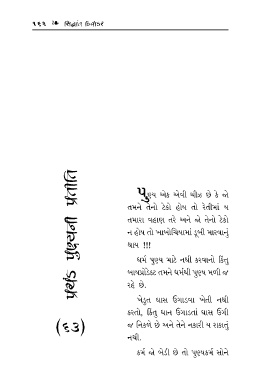 ૧૬૬ ❧ સિદ્ધાંત દિવાકર
પ્રચંડ પુણ્યની પ્રતીતિ
(૬૩)
પુણ્ય એક એવી ચીજ છે કે જો
તમને તેનો ટેકો હોય તો રેતીમાં ય
તમારા વહાણ તરે અને જો તેનો ટેકો
ન હોય તો ખાબોચિયામાં ડૂબી મારવાનું
થાય !!!
ધર્મ પુણ્ય માટે નથી કરવાનો કિંતુ
બાયપ્રોડેક્ટ તમને ધર્મથી પુણ્ય મળી જ
રહે છે.
ખેડૂત ઘાસ ઉગાડવા ખેતી નથી
કરતો, કિંતુ ધાન ઉગાડતાં ઘાસ ઉગી
જ નિકળે છે અને તેને નકારી ય શકાતું
નથી.
કર્મ જો બેડી છે તો પુણ્યકર્મ સોને